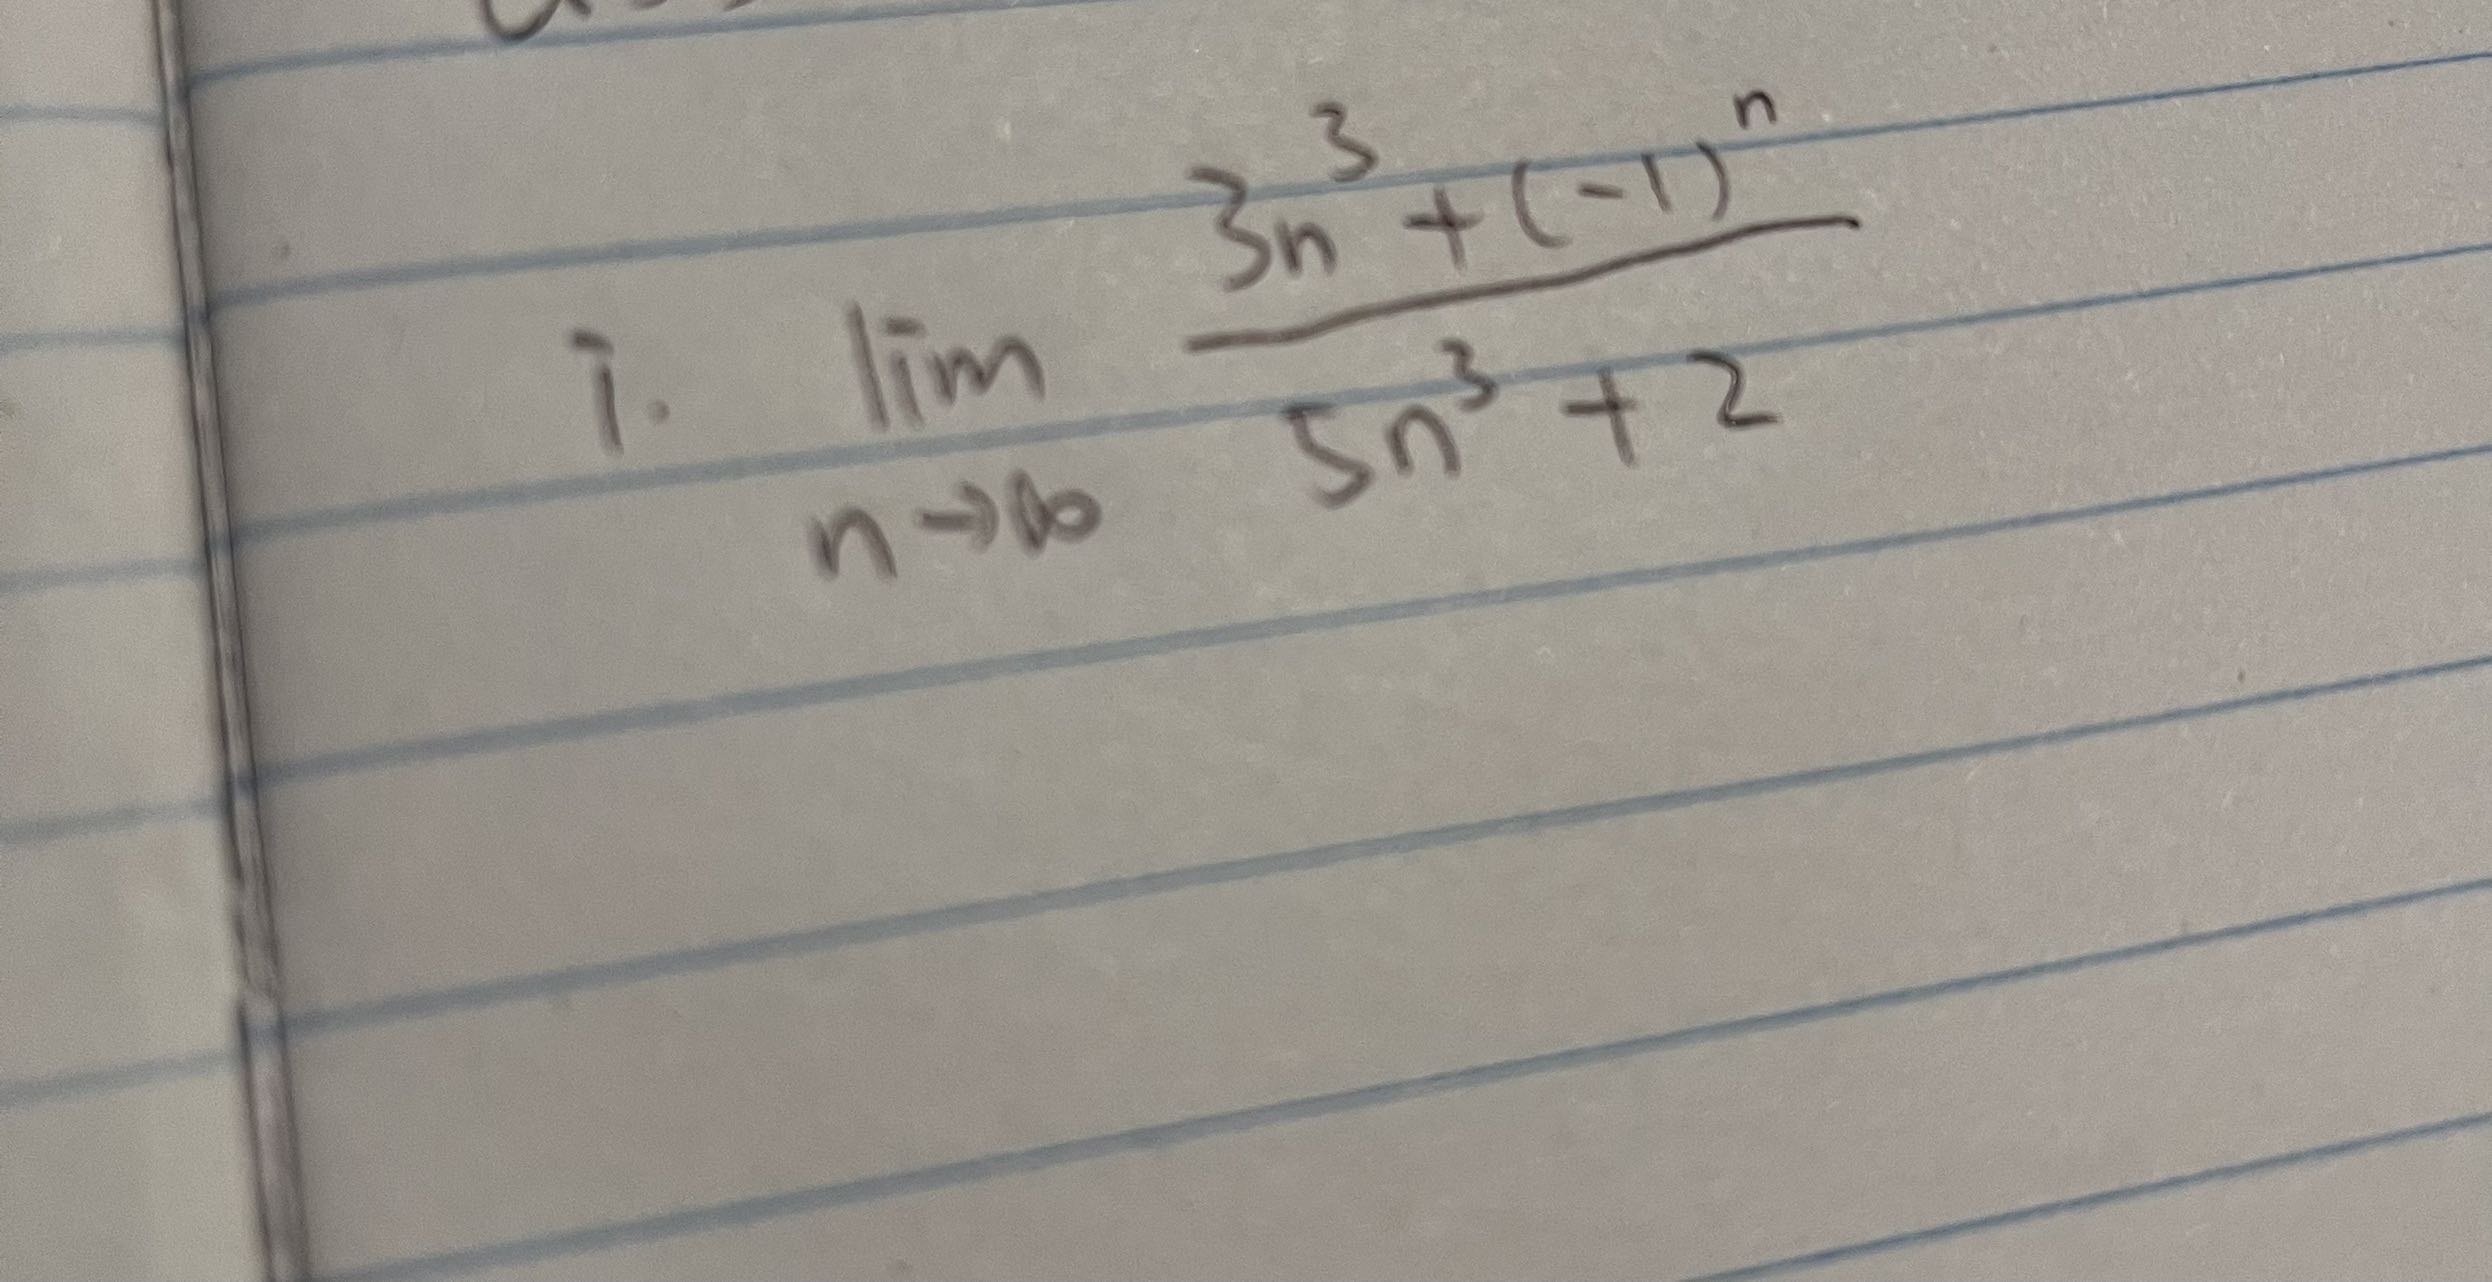 i. lim n→∞ (3n³ + (-1)ⁿ) / (5n³ + 2)